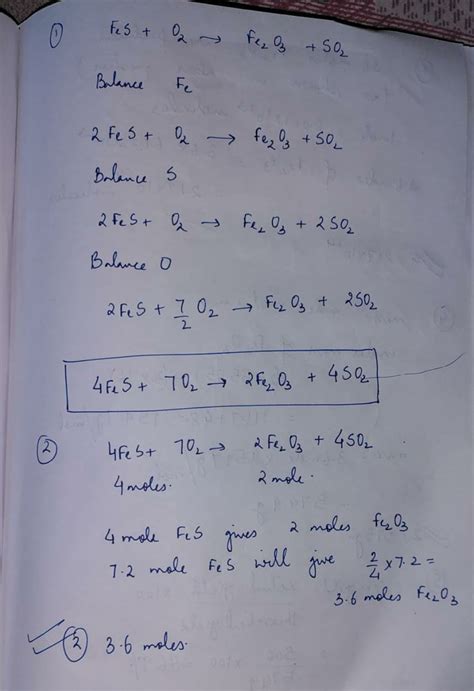 ① FeS + O₂ → Fe₂O₃ + SO₂
Balance Fe
2 FeS + O₂ → Fe₂O₃ + SO₂
Balance S
2 FeS + O₂ → Fe₂O₃ + 2SO₂
Balance O
2FeS + 7/2 O₂ → Fe₂O₃ + 2SO₂
4FeS + 7O₂ → 2Fe₂O₃ + 4SO₂
② 4FeS + 7O₂ → 2Fe₂O₃ + 4SO₂
4 moles. 2 mole.
4 mole FeS gives 2 moles Fe₂O₃
7.2 mole FeS will give 2/4 × 7.2 =
3.6 moles Fe₂O₃
② 3.6 moles.